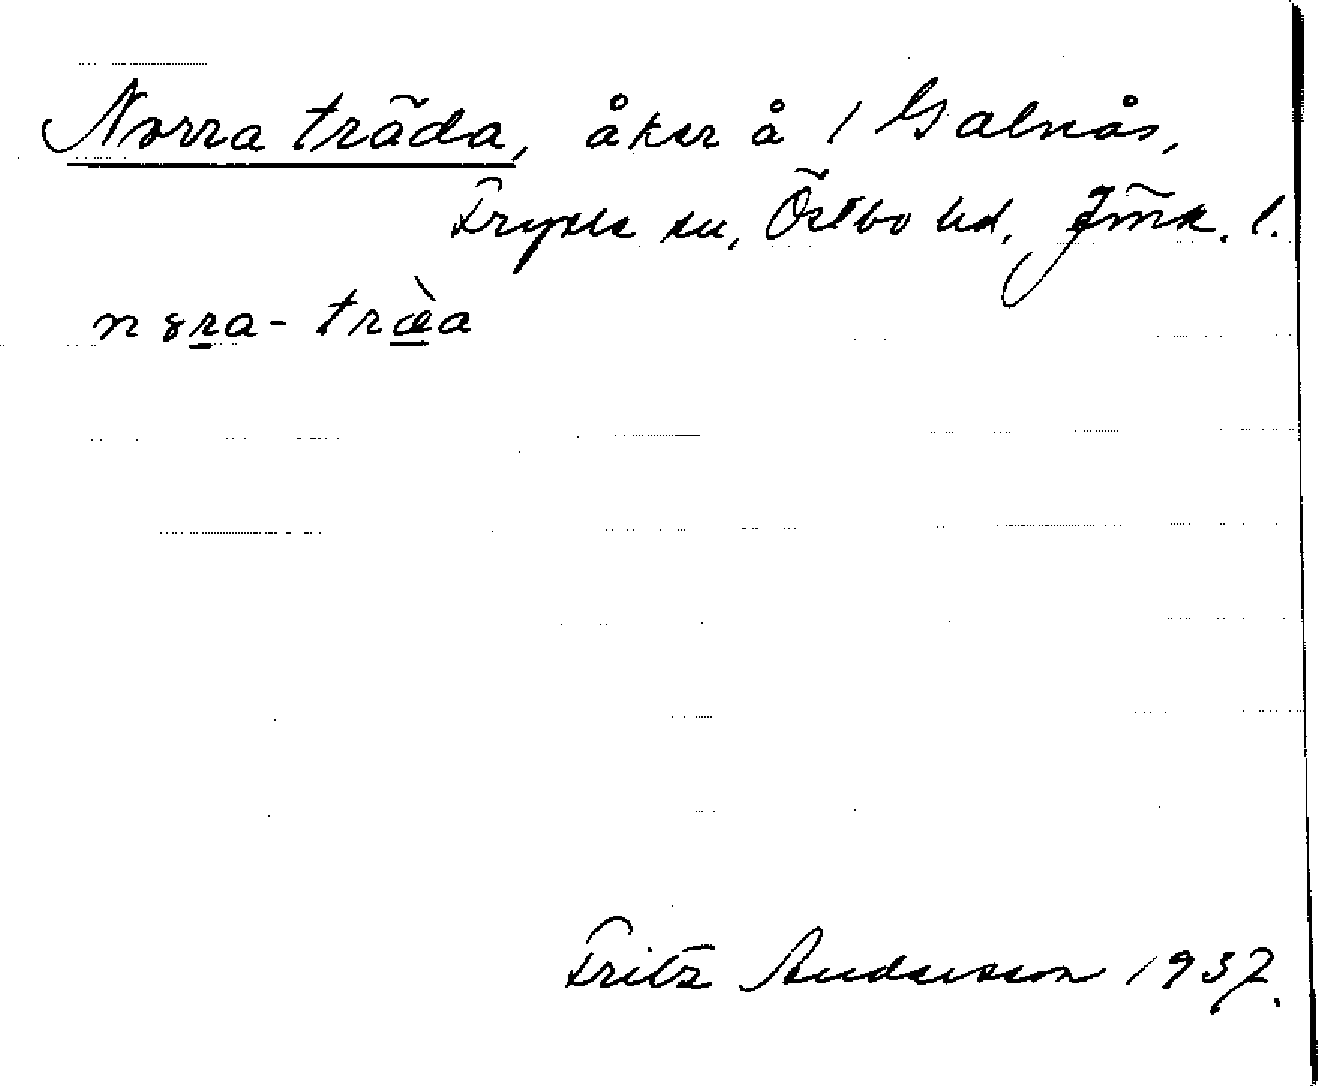 Norra träda, åker å 1 Galnås,
Fryele sn, Östbo hd, Jmk. l.
n8ra-træ̀a
Fritz Andersson 1937.